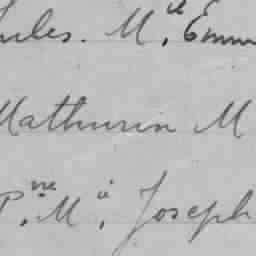 Jules. M.ie Emm
Mathurin M
P.re M.ie Joseph